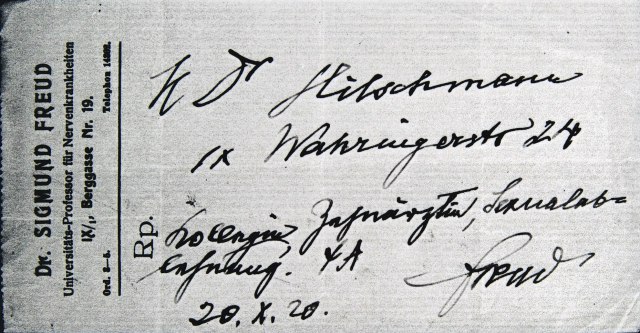 Dr. SIGMUND FREUD
Universitäts-Professor für Nervenkrankheiten
IX/1, Berggasse Nr. 19.
Ord. 3–5. Telephon
H Dr Hitschmann
IX Währingerstr 24
Rp.
Kollegin, Zahnärztin, Sexualab=
lehnung.
Freud
20. X. 20.